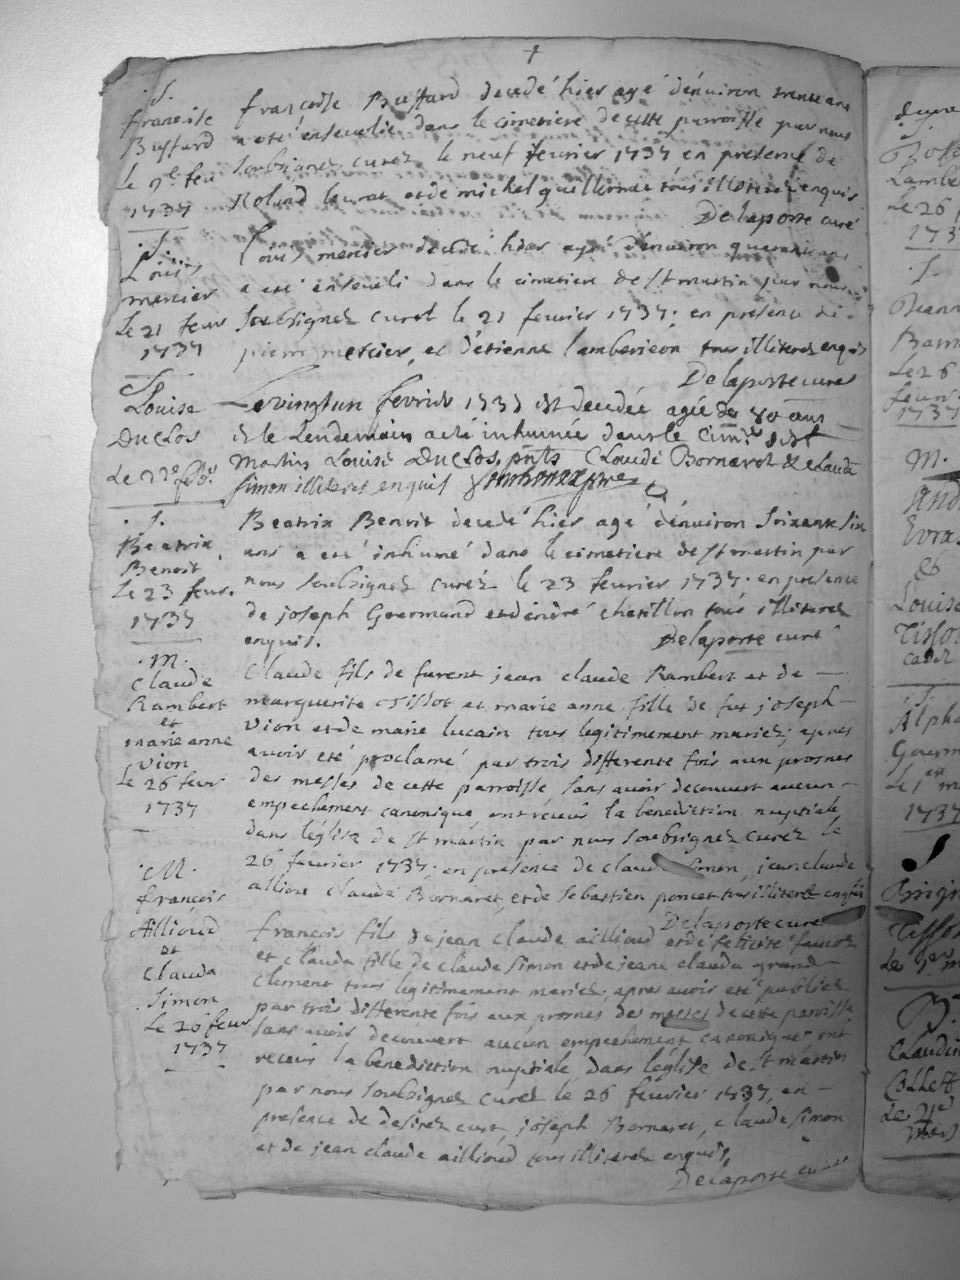 .S.
françoise
Buffard
le 9e feu
1737
françoise Buffard decedé hier agé d'environ trente ans
a eté ensevelie dans le cimetiere de cette parroisse par nous
soubsignez curez le neuf feuvrier 1737 en presence de
Roland laurat et de michel guillermet tous illiterez enquis
Delaporte curé
.S.
Louis
mercier
Le 21 feur
1737
Louis mercier decedé hier agé d'environ quarante ans
a eté enseveli dans le cimetiere de st martin par nous
soubsignez curez le 21 feuvrier 1737; en presence de
pierre mercier, et d'etienne lamberieon tous illiterez enquis
Delaporte curez
S
Louise
Duclos
Le 22e feb.
Levingtun fevrier 1737 est decedée agée de 80 ans
et le Lendemain a eté inhumée dans le Cimre dist
Martin Louise Duclos, pnts Claude Bornaret & claude
simon illiteret enquis
.S.
Beatrix
Benoit
Le 23 feur.
1737
Beatrix Benoit decedé hier agé d'environ soixante six
ans a eté inhumé dans le cimetiere de st martin par
nous soubsignez curéz le 23 feuvrier 1737. en presence
de joseph Gourmand et d'enéré chatillon tous illiterez
enquis.
Delaporte curé
.M.
Claude
Rambert
et
marie anne
vion
Le 26 feur
1737
Claude fils de furent jean claude Rambert et de
marguerite Tissot et marie anne fille de fut joseph
vion et de marie lucain tous legitimement mariez; apres
avoir eté proclamé par trois differente fois aux prosnes
des messes de cette parroisse sans avoir decouvert aucun
empechement canonique, ont réceus la benediction nuptiale
dans léglise de st martin par nous soubsignez curez le
26 feuvrier 1737; en presence de claude simon, jean claude
alliou claude Bornaret, et de sebastien poncet tous illiterez enquis
Delaporte curé
.M.
françois
Aillioud
et
Clauda
Simon
Le 26 feur
1737
françois fils de jean claude aillioud et de felicité
et clauda fille de claude simon et de jeane clauda grand
clement tous legitimement mariez; apres avoir eté publiez
par trois differente fois aux prosnes des messes de cette paroisse
sans avoir decouvert aucun empechement canonique ont
receus la benediction nuptiale dans léglise de st martin
par nous soubsignez curez le 26 feuvrier 1737, en
presence de desirez curt joseph Bornaret, claude simon
et de jean claude aillioud tous illiterez enquis,
Delaporte curé
.S.
Lambe
Le 26
173
.S.
Jeann
Le 26
feuv
1737
M.
And
&
Louise
Tisso
.S.
Alph
Gourm
1737
S
Tisso
M.
Claudin
Collet